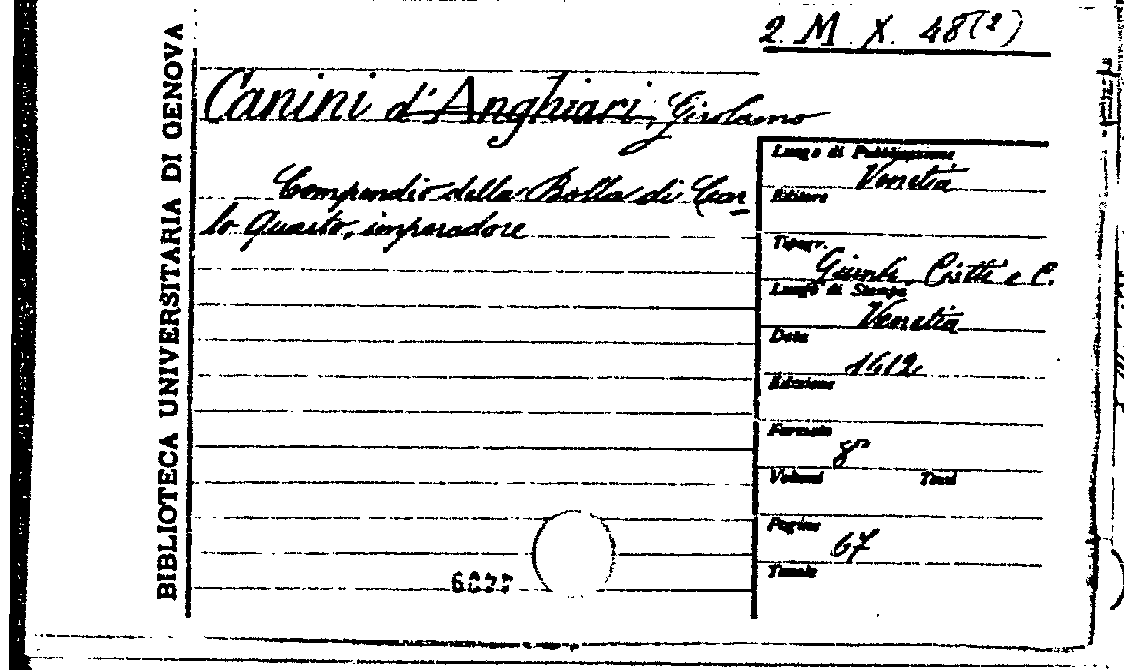 2. M. X. 48(2)
BIBLIOTECA UNIVERSITARIA DI GENOVA
Canini d'Anghiari, Girolamo
Compendio della Bolla di Car
lo Quarto, imperadore
Luogo di Pubblicazione
Venetia
Editore
Tipogr.
Giunti, Ciotti e C.
Luogo di Stampa
Venetia
Data
1612
Edizione
Formato
8°
Volumi Tomi
Pagine
67
Tavole